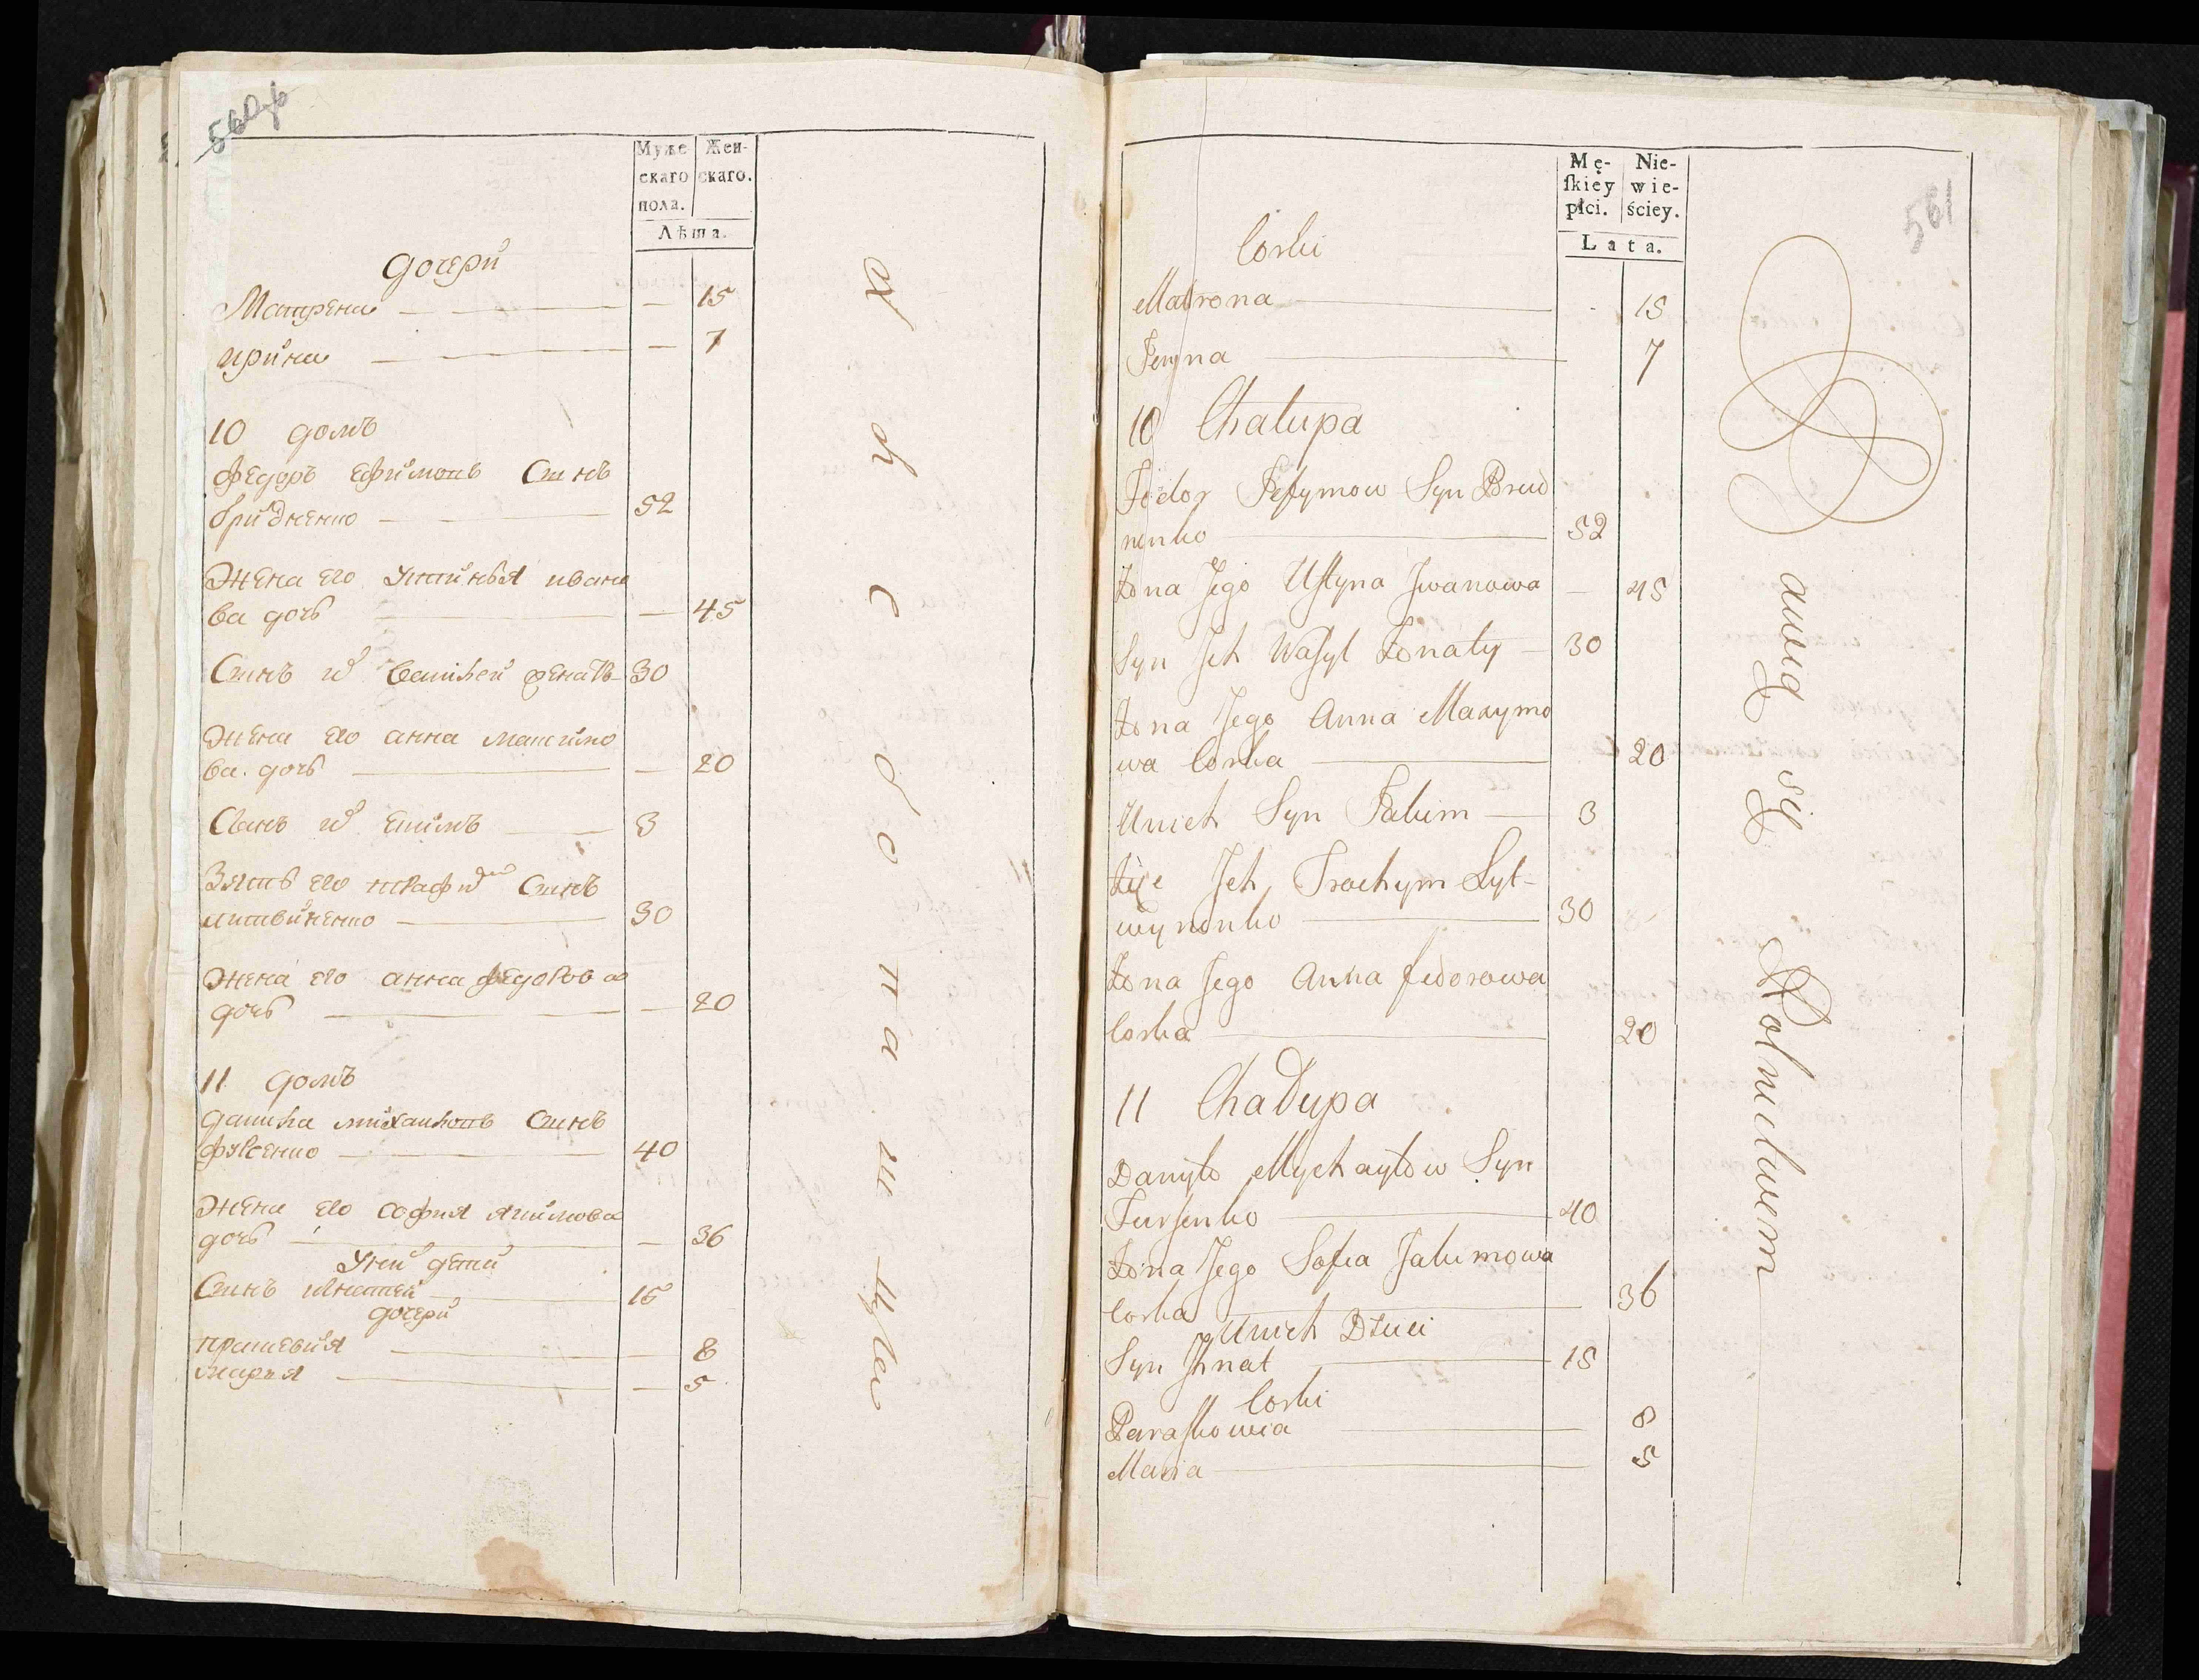 560об
Муже
скаго
пола.
Жен-
скаго.
Лѣта.
дочери
Матрена — 15
ирина — 7
10 домъ
Федоръ Ефимовъ Синъ
бридненко — 52
Жена его устинья ивано
ва дочь — 45
Синъ 30
Жена его анна максимо
ва дочь — 20
Синъ — 3
Зять его Синъ
литвиненко — 30
Жена его анна федорова
дочь — 20
11 домъ
данила михаиловъ Синъ
фурсенко — 40
Жена его софия якимова
дочь — 36
у них дети
Синъ игнатей — 15
дочери
прасковия — 8
мария — 5
561
Mę-
ſkiey
płci.
Nie-
wie-
ściey.
Lata.
Corki
Matrona 15
Jeryna 7
10 Chalupa
Fedor Jefymow Syn Brud
nenko 52
Żona Jego Uſtyna Jwanowa — 45
Syn Jch Waſyl Żonaty — 30
Żona Jego Anna Maxymo
wa Corka 20
Unich Syn Jakim — 3
Zięc Jch Trochym Lyt-
wynenko 30
Żona Jego Anna fedorowa
Corka 20
11 Chalupa
Danyło Mychayłow Syn
Furſenko 40
Żona Jego Sofia Jakimowa
Corka 36
Unich Dzieci
Syn Jhnat 15
Corki
Paraſkowia 8
Maria 5
Bawią się Rolnictwem